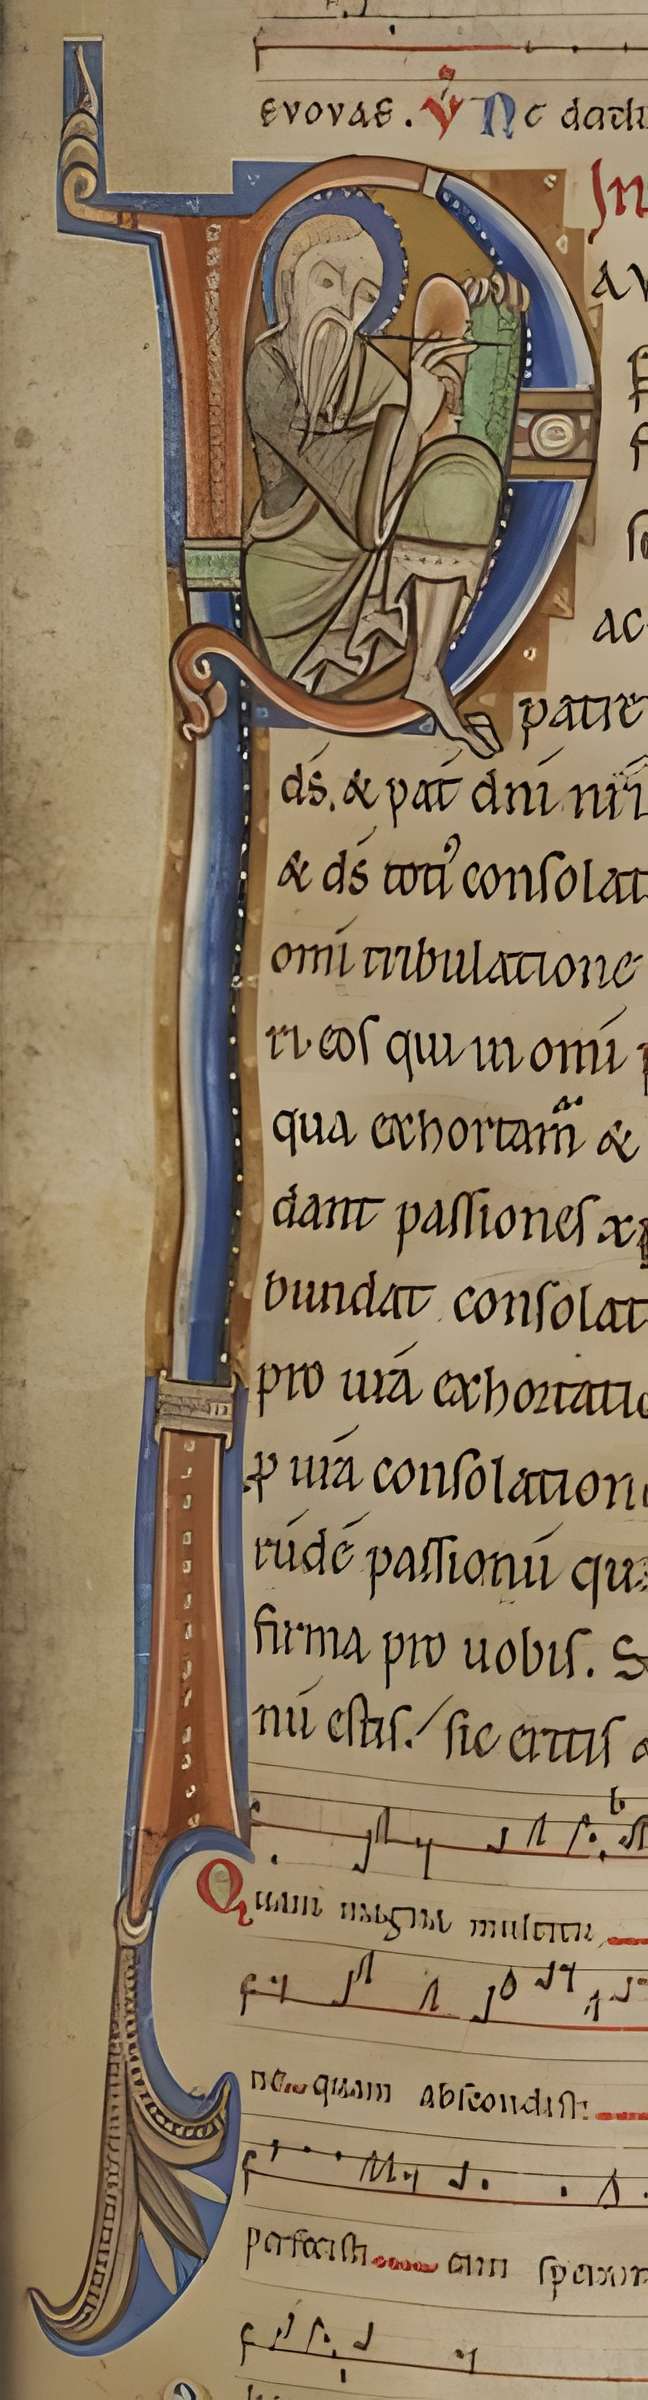 evovae. V̊ Nc dat
In
av
ac
patre
ds̄. & pat̄ dn̄i nr̄i
& ds̄ toti᾽ conſolat
om̄i tribulatione
ri eoſ qui in om̄i p
qua exhortam̄ &
dant paſſioneſ xp
bundat conſolat
pro ur̄a exhortatio
ꝑ ur̄a conſolation
rūdē paſſionū qua
firma pro uobiſ. S
nū eſtiſ. ſic eritiſ
b
Quam magna multitu
ne quam abſcondiſti
perfeciſti eam speran